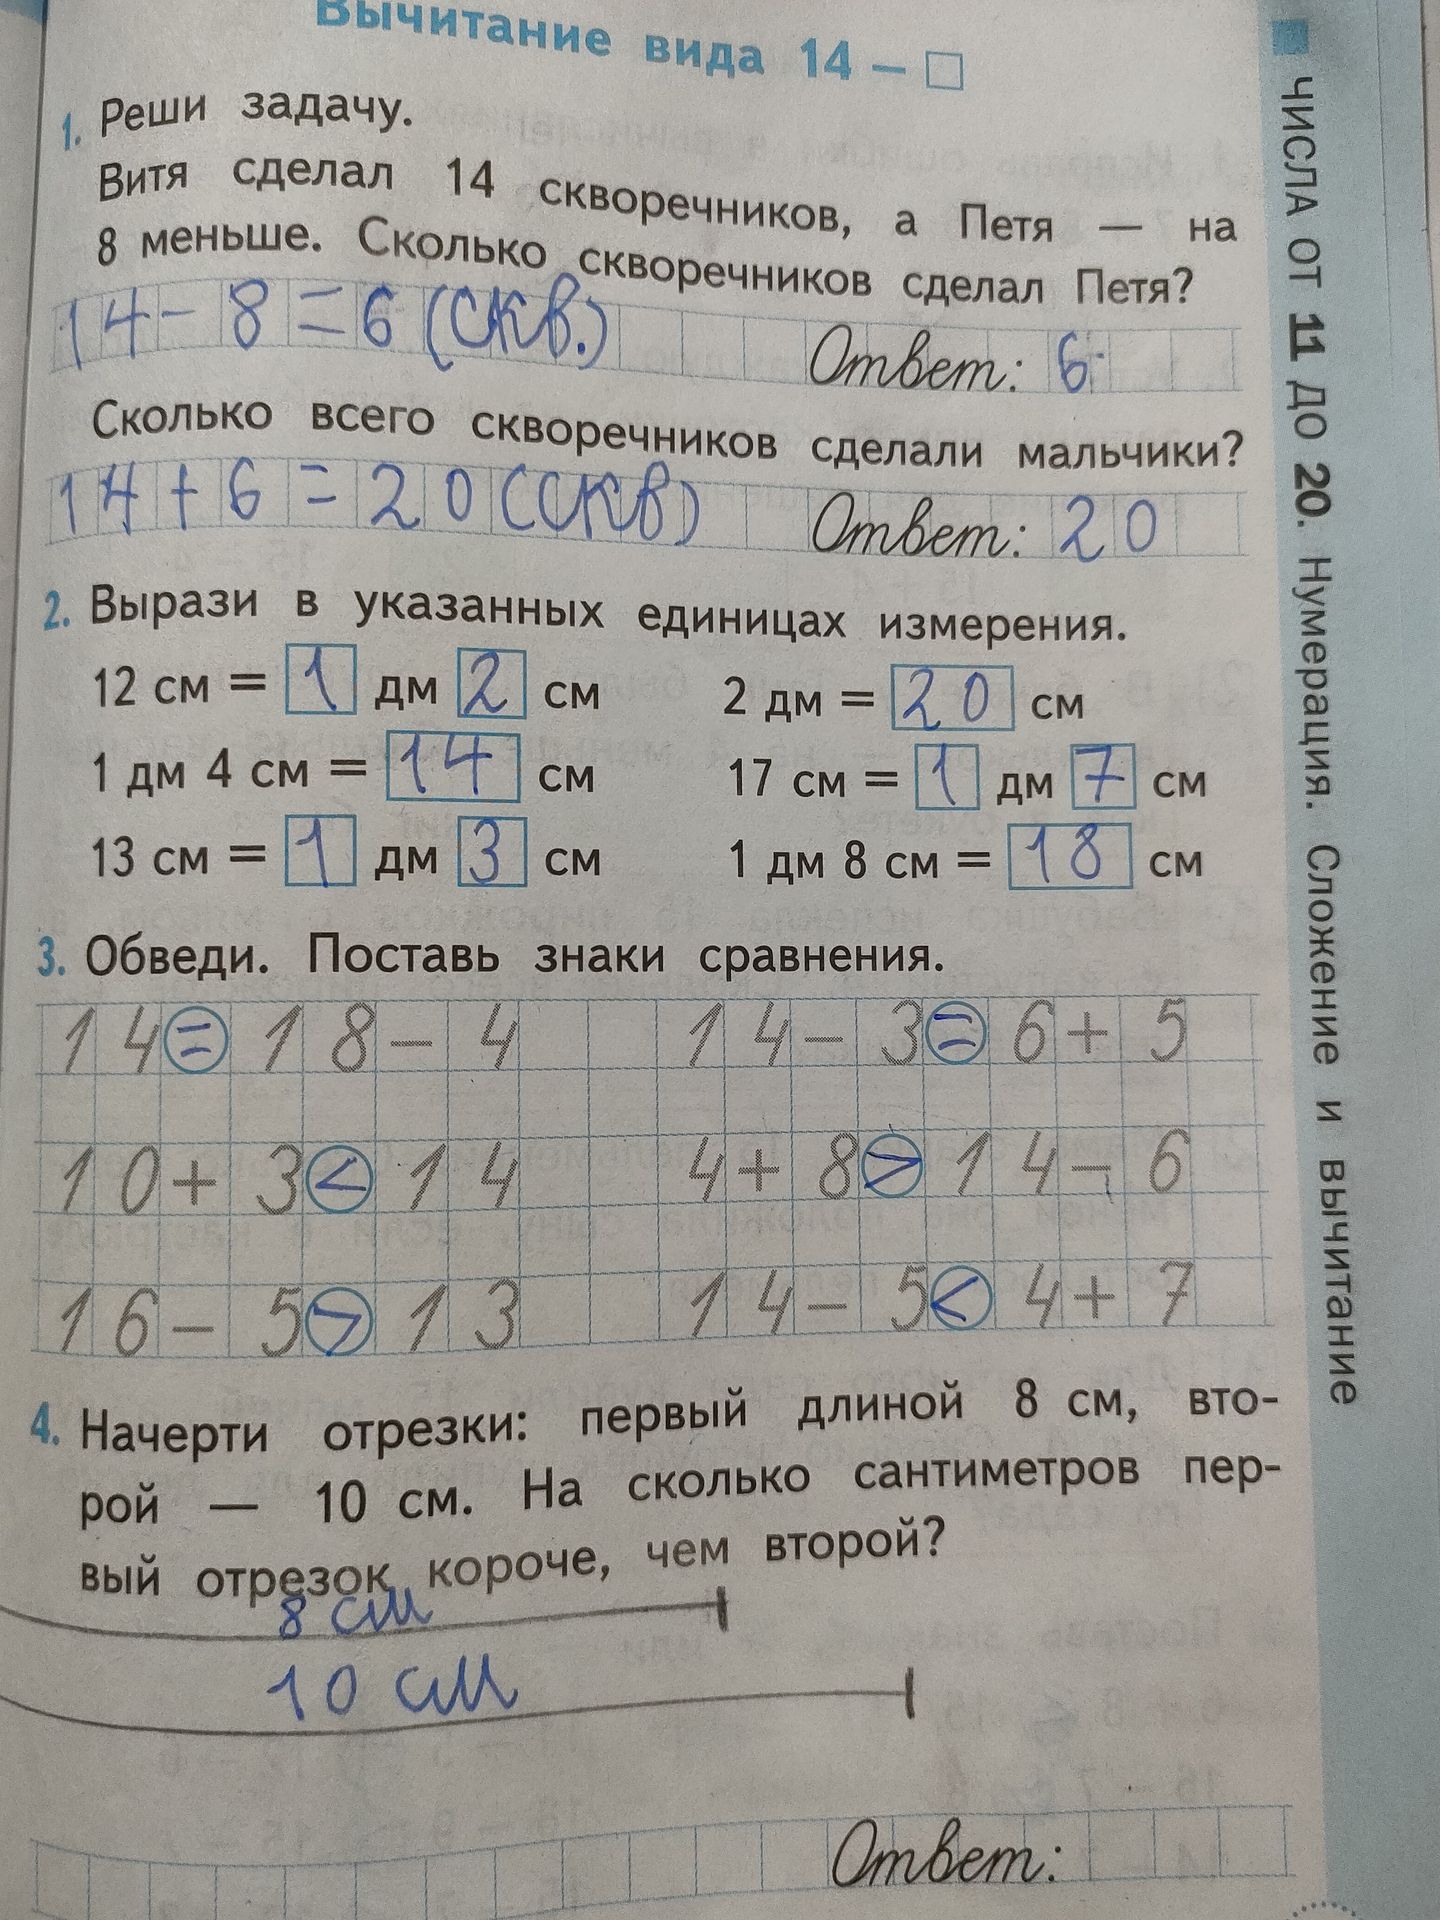 Вычитание вида 14 – □
1. Реши задачу.
Витя сделал 14 скворечников, а Петя — на
8 меньше. Сколько скворечников сделал Петя?
14 - 8 = 6 (скв.) Ответ: 6.
Сколько всего скворечников сделали мальчики?
14 + 6 = 20 (скв) Ответ: 20
2. Вырази в указанных единицах измерения.
12 см = 1 дм 2 см 2 дм = 20 см
1 дм 4 см = 14 см 17 см = 1 дм 7 см
13 см = 1 дм 3 см 1 дм 8 см = 18 см
3. Обведи. Поставь знаки сравнения.
14 = 18 - 4 14 - 3 = 6 + 5
10 + 3 < 14 4 + 8 > 14 - 6
16 - 5 > 13 14 - 5 < 4 + 7
4. Начерти отрезки: первый длиной 8 см, вто-
рой — 10 см. На сколько сантиметров пер-
вый отрезок короче, чем второй?
8 см
10 см
Ответ:
ЧИСЛА ОТ 11 ДО 20. Нумерация. Сложение и вычитание